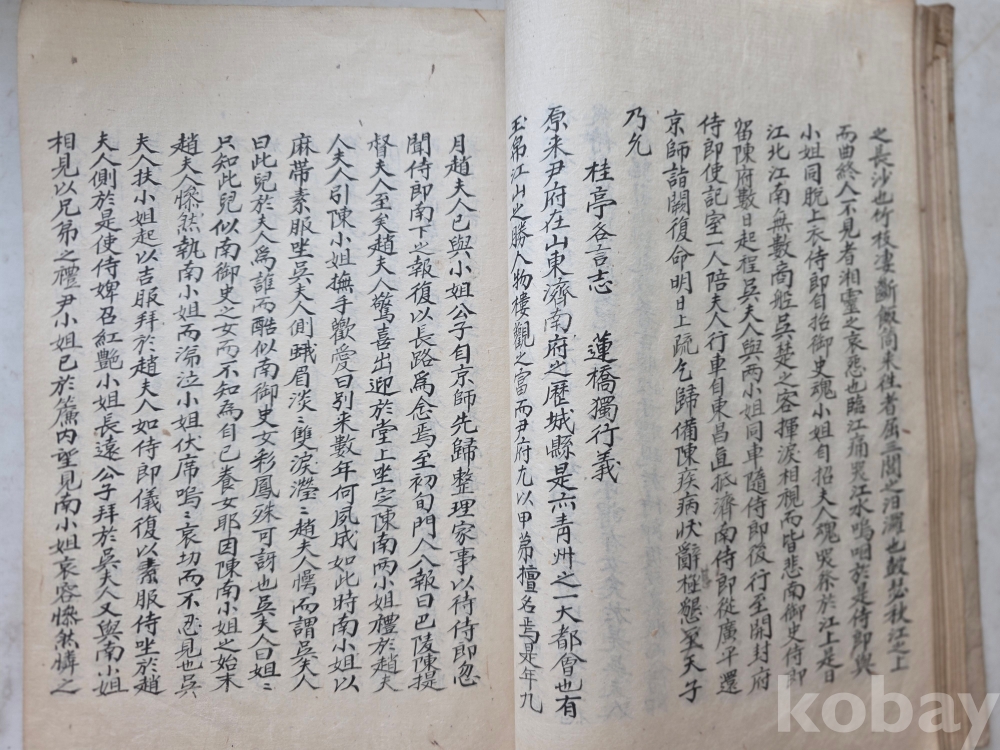 之長沙也竹枝凄斷傲徜来往者屈三閭之汨灕也鼓瑟秋江之上
而曲終人不見者湘灵之哀怨也臨江痛哭江水嗚咽於是侍郎與
小姐同脱上衣侍郎自招御史魂小姐自招夫人魂哭祭於江上是日
江北江南無數商舡吳楚之客揮淚相視而皆悲南御史侍郎
留陳府數日起程吳夫人與兩小姐同車隨侍郎後行至開封府
侍郎使記室一人陪夫人行車自東昌直抵濟南侍郎從廣平還
京師詣闕復命明日上疏乞歸備陳疾病状辭極懇至天子
乃允
桂亭各言志 蓮橋獨行義
原来尹府在山東濟南府之歷城縣是亦青州之一大都會也有
玉帛江山之勝人物樓觀之富而尹府尤以甲第擅名焉是年九
月趙夫人已與小姐公子自京師先歸整理家事以待侍郎忽
聞侍郎南下之報復以長路爲念焉至初旬門人入報曰巴陵陳提
督夫人至矣趙夫人驚喜出迎於堂上坐定陳南兩小姐禮於趙夫
人夫人引陳小姐撫手歡愛曰别来數年何夙成如此時南小姐以
麻帶素服坐吳夫人側蛾眉淡〻雙淚瀅〻趙夫人愕而謂吳夫人
曰此兒於夫人爲誰而酷似南御史女彩鳳殊可訝也吳夫人曰姐〻
只知此兒似南御史之女而不知爲自己養女耶因陳南小姐之始末
趙夫人慘然執南小姐而涕泣小姐伏席嗚〻哀切而不忍見也吳
夫人扶小姐起以吉服拜於趙夫人如侍郎儀復以素服侍坐於趙
夫人側於是使侍婢召紅艷小姐長遠公子拜於吳夫人又與南小姐
相見以兄弟之禮尹小姐已於簾内望見南小姐哀容慘然憐之
kobay